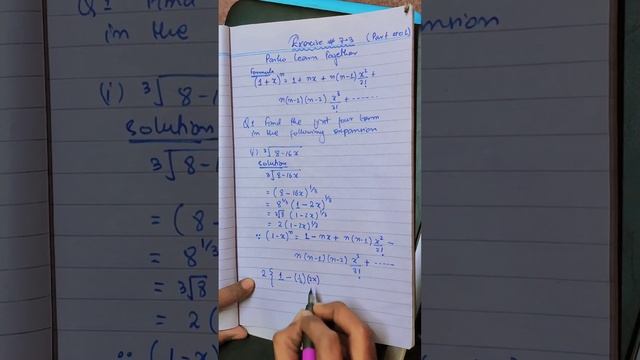 Exercise # 7.3 (Part no 1)
Pak Learn Together
Formula
(1+x)^n = 1 + nx + n(n-1) x²/2! +
n(n-1)(n-2) x³/3! + ------
Q1 Find the first four term
in the following expansion
(i) ³√8-16x
Solution
³√8-16x
= (8-16x)^1/3
= 8^1/3 (1-2x)^1/3
= ³√8 (1-2x)^1/3
= 2(1-2x)^1/3
∵ (1-x)^n = 1 - nx + n(n-1) x²/2! -
n(n-1)(n-2) x³/3! + ------
2{ 1 - (1/3)(2x)